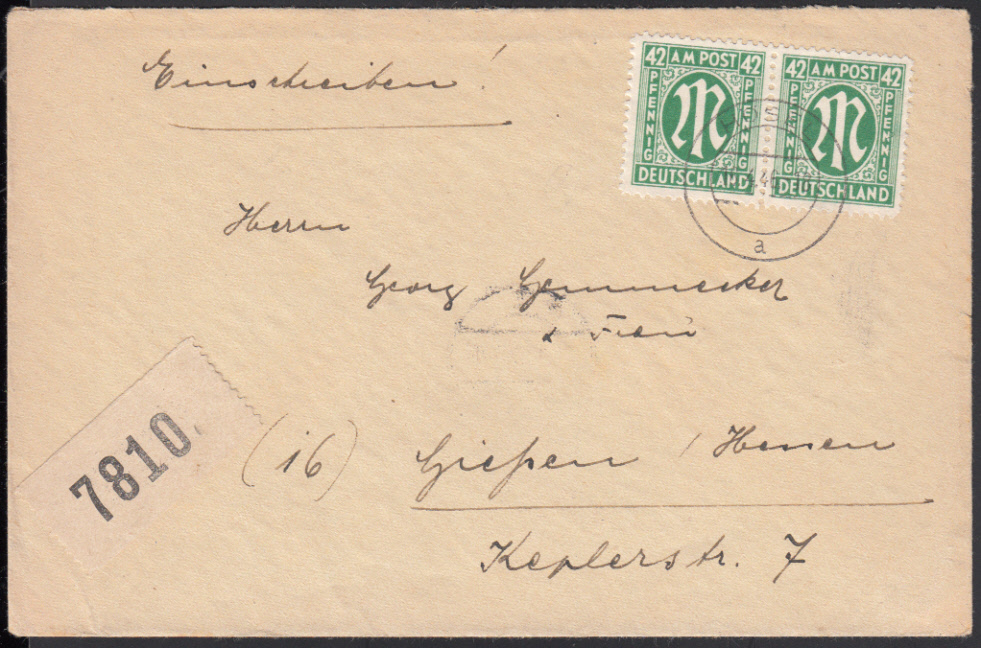 Einschreiben!
42 AM POST 42
PFENNIG PFENNIG
DEUTSCHLAND
42 AM POST 42
PFENNIG PFENNIG
DEUTSCHLAND
a
Herrn
Georg
& Frau
7810
(16) Gießen / Hessen
Keplerstr. 7